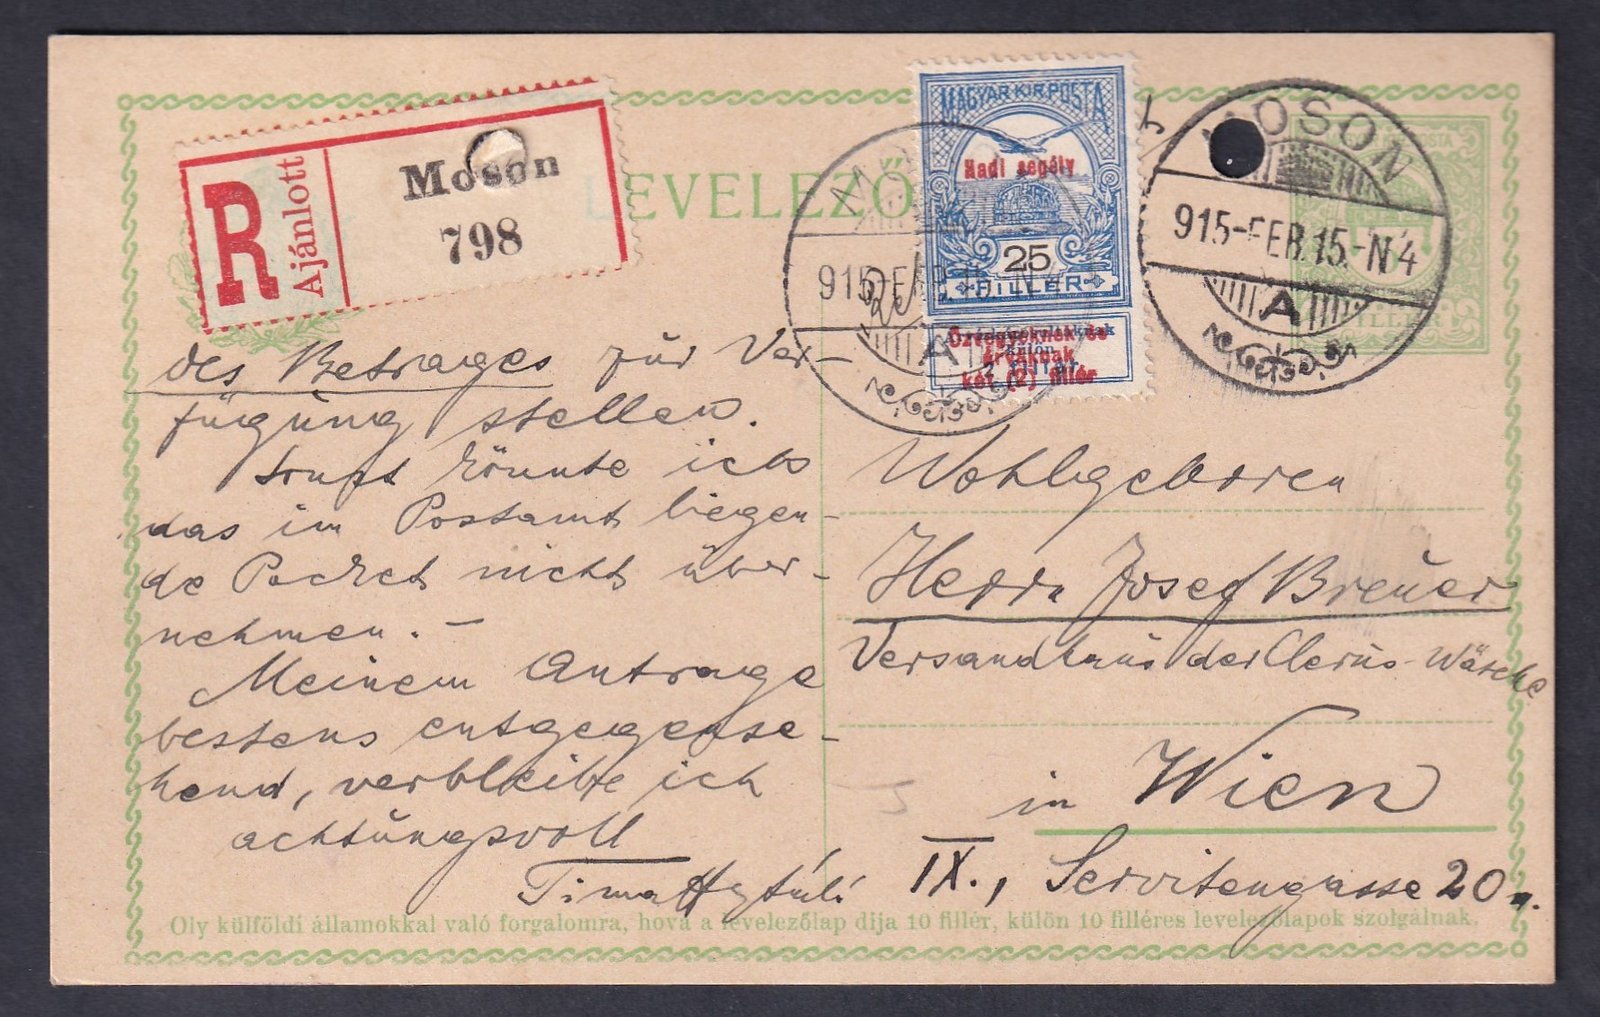 R
Ajánlott
Moson
798
LEVELEZŐ
MAGYAR KIR. POSTA
Hadi segély
25
FILLÉR
Özvegyeknek és
árváknak
két (2) fillér
MOSON
915-FEB.15.-N4
A
915-FEB
A
des Betrages zur Ver-
fügung stellen.
Sonst könnte ich
das im Postamt liegen-
de Packet nicht über-
nehmen. –
Meinem Antrage
bestens entgegense-
hend, verbleibe ich
achtungsvoll
Wohlgeboren
Herrn Josef Breuer
Versandhaus der Clerus-Wäsche
in Wien
IX., Servitengasse 20
Oly külföldi államokkal való forgalomra, hová a levelezőlap dija 10 fillér, külön 10 filléres levelezőlapok szolgálnak.